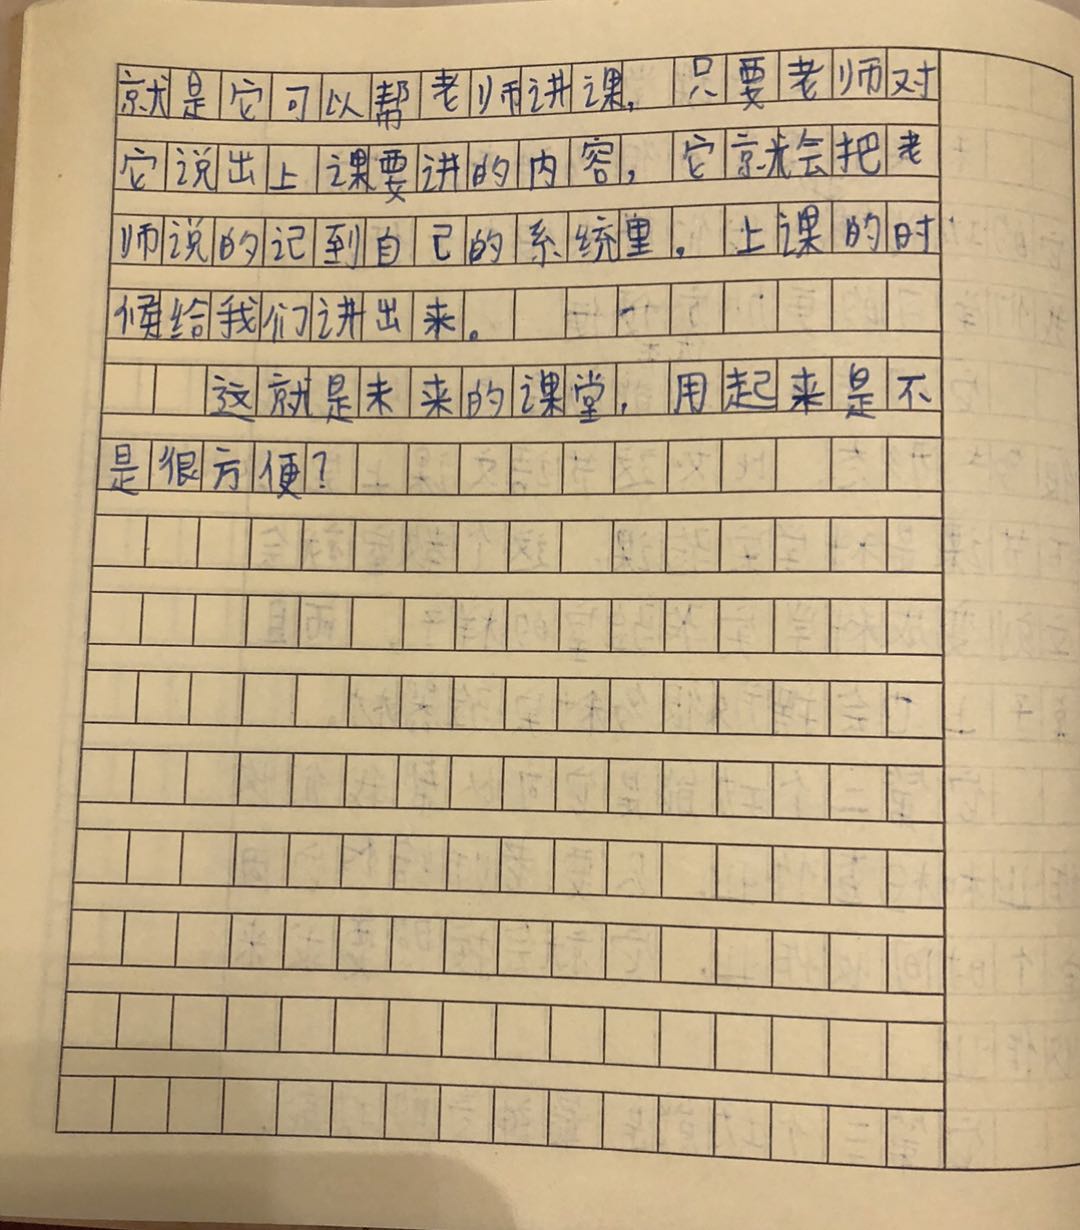 就是它可以帮老师讲课，只要老师对
它说出上课要讲的内容，它就会把老
师说的记到自己的系统里。上课的时
候给我们讲出来。
这就是未来的课堂，用起来是不
是很方便？